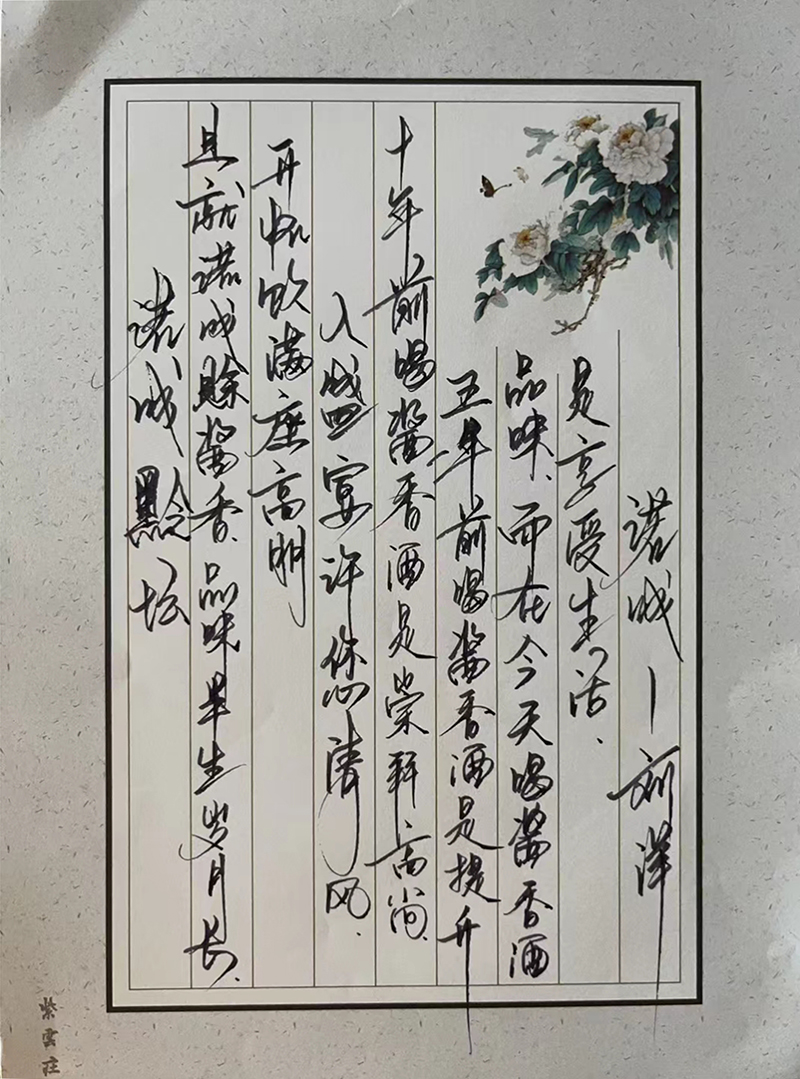 诺成黔坛
且就诺成赊酱香.品味半生岁月长.
开怀饮满座高朋
入盛宴许您清风.
十年前喝酱香酒是崇拜高尚.
五年前喝酱香酒是提升
品味.而在今天喝酱香酒
是享受生活.
诺成—刘洋
紫雲莊